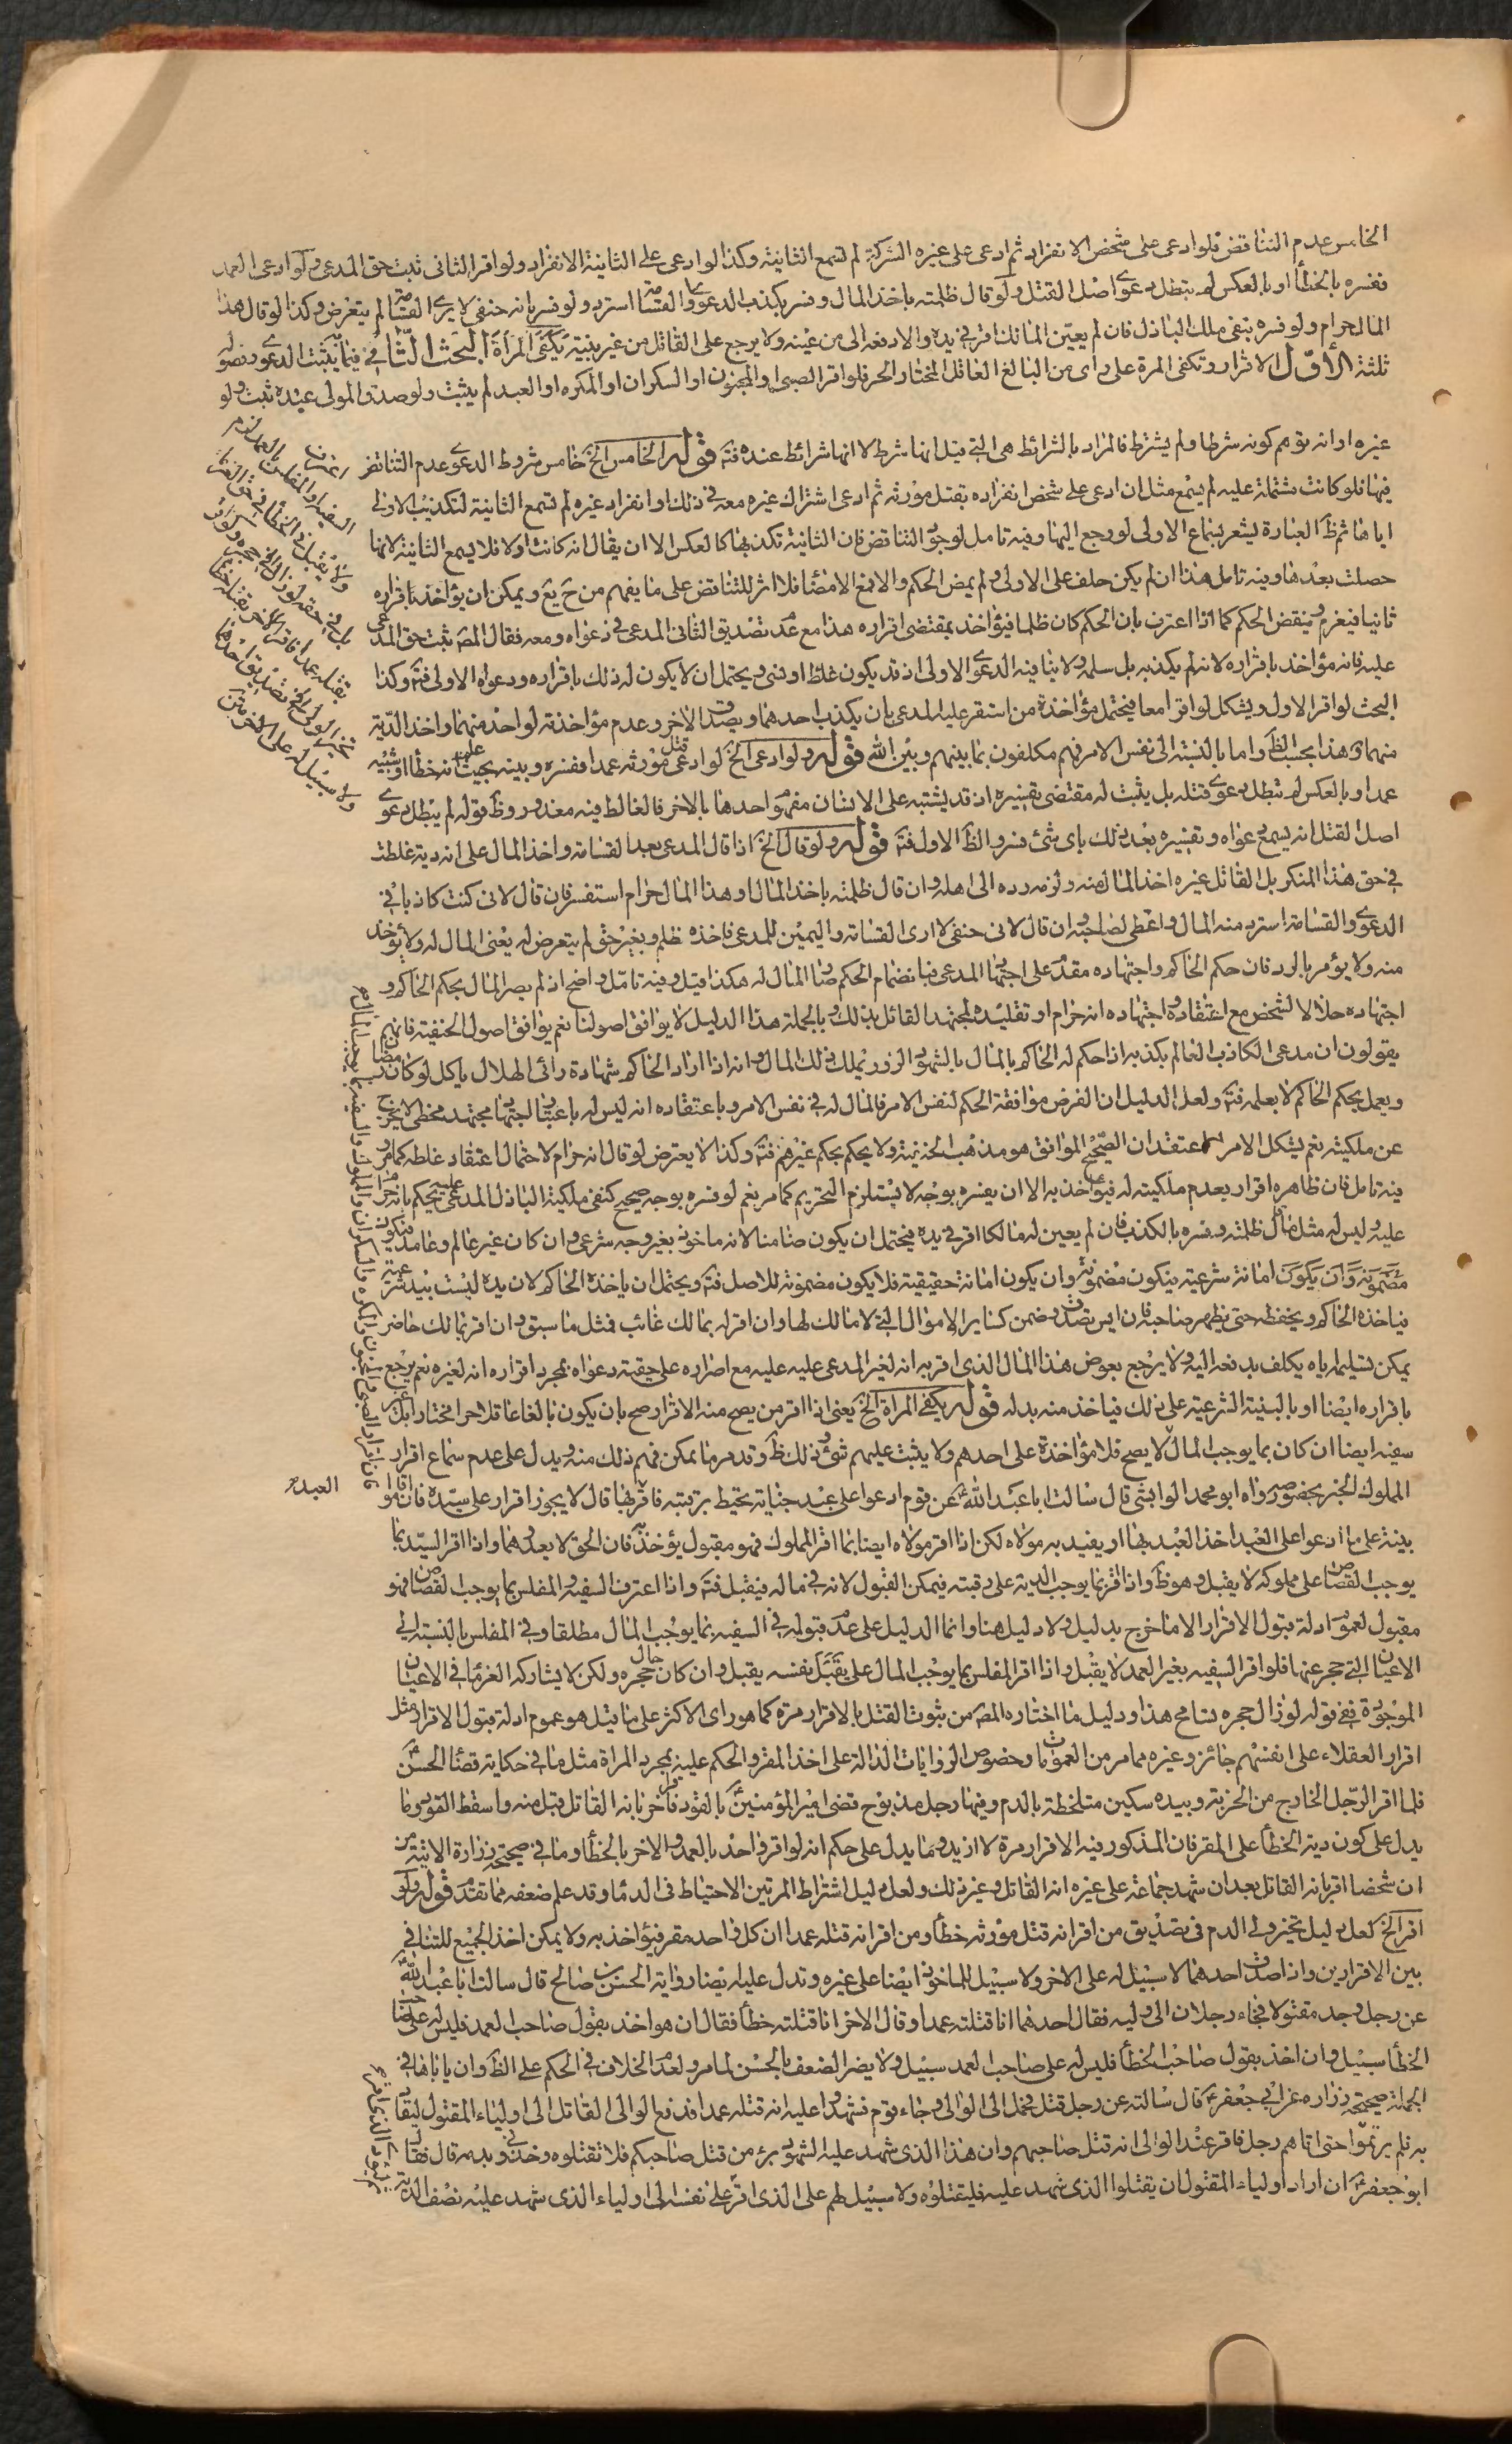 الخامس عدم التناقض فلو ادعى على شخص الانفراد ثم ادعى على غيره الشركة لم تسمع الثانية وكذا لو ادعى على الثانية الانفراد ولو اقر الثانى ثبت حق المدعى ولو ادعى العمد
ففسره بالخطأ او بالعكس لم تبطل دعوى اصل القتل ولو قال ظلمته باخذ المال وفسر بكذب الدعوى والقسامة استرد ولو فسر بانه حنفى لا يرى القسامة لم يتعرض وكذا لو قال هذا
المال حرام ولو فسره بنفى ملك الباذل فان لم يعين المالك اقر فى يده والا دفعه الى من عينه ولا يرجع على القاتل من غير بينة يكفى المرأة البحث الثانى فيما يثبت الدعوى وفصوله
ثلثة الاول الاقرار وتكفى المرة على راى من البالغ العاقل المختار الحر فلو اقر الصبى او المجنون او السكران او المكره او العبد لم يثبت ولو صدق المولى عبده ثبت ولو
غيره او انه توهم كونه شرطا ولم يشترط فالمراد بالشرائط هى التى قيل انها شرط لا انها شرائط عنده فتـ قوله الخامس الخ خامس شروط الدعوى عدم التناقض
فيها فلو كانت مشتملة عليه لم يسمع مثل ان ادعى على شخص انفراده بقتل مورثه ثم ادعى اشتراك غيره معه فى ذلك او انفراد غيره لم تسمع الثانية لتكذيب الاولى
اياها ثم ظ العبارة يشعر بسماع الاولى لو رجع اليها وفيه تامل لوجود التناقض فان الثانية تكذبها كالعكس الا ان يقال انه كانت اولا فلا يسمع الثانية لانها
حصلت بعدها وفيه تامل هذا ان لم يكن حلف على الاولى ولم يمض الحكم والا فمع الامضاء فلا اثر للتناقض على ما يفهم من ح يع ويمكن ان يؤاخذ باقراره
ثانيا فيغرم وينقض الحكم كما اذا اعترف بان الحكم كان ظلما فيؤاخذ بمقتضى اقراره هذا مع عدم تصديق الثانى المدعى فى دعواه ومعه فقال المص ثبت حق المدعى
عليه فانه مؤاخذ باقراره لانه لم يكذبه بل سلمه ولا ينافيه الدعوى الاولى اذ قد يكون غلط او نسى ويحتمل ان لا يكون له ذلك باقراره ودعواه الاولى فتـ وكذا
البحث لو اقر الاول ويشكل لو اقرا معا فيحتمل مؤاخذة من استقر عليه المدعى بان يكذب احدهما ويصدق الاخر وعدم مؤاخذته لواحد منهما واخذ الدية
منهما هذا بحسب الظ واما بالنسبة الى نفس الامر فهم مكلفون بما بينهم وبين الله قوله ولو ادعى الخ لو ادعى قتل مورثه عمدا ففسره وبينه بحيث علم انه خطأ او شبيه
عمد او بالعكس لم تبطل دعوى قتله بل يثبت له مقتضى تفسيره اذ قد يشتبه على الانسان مفهوم احدها بالاخر فالغالط فيه معذور وظ قوله لم يبطل دعوى
اصل القتل انه يسمع دعواه وتفسيره بعد ذلك باى شئ فسر والظ الاول فتـ قوله ولو قال الخ اذا قال المدعى بعد القسامة واخذ المال على انه دية غلطت
فى حق هذا المنكر بل القاتل غيره اخذ المال منه ولزمه رده الى اهله وان قال ظلمته باخذ المال او هذا المال حرام استفسر فان قال لانى كنت كاذبا فى
الدعوى والقسامة استرد منه المال واعطى لصاحبه وان قال لانى حنفى لا ارى القسامة واليمين للمدعى فاخذه ظلم وبغير حق لم يتعرض له يعنى المال له ولا يؤخذ
منه ولا يؤمر بالرد فان حكم الحاكم واجتهاده مقدم على اجتهاد المدعى فبانضمام الحكم صار المال له هكذا قيل وفيه تامل واضح اذ لم يصر المال بحكم الحاكم و
اجتهاده حلالا لشخص مع اعتقاده واجتهاده انه حرام او تقليده لمجتهد القائل بذلك وبالجملة هذا الدليل لا يوافق اصولنا نعم يوافق اصول الحنفية فانهم
يقولون ان مدعى الكاذب العالم بكذبه اذا حكم له الحاكم بالمال بالشهود الزور يملك ذلك المال وانه اذا اراد الحاكم شهادة رائى الهلال ياكل لو كان رمضان
ويعمل بحكم الحاكم لا بعلمه فتـ ولعل الدليل ان الفرض موافقة الحكم لنفس الامر فالمال له فى نفس الامر وباعتقاده انه ليس له باعتبار اجتهاد مجتهد مخطى لا يخرج
عن ملكيته نعم يشكل الامر لو اعتقد ان الصحيح الموافق هو مذهب الحنفية ولا يحكم بحكم غيرهم فتـ وكذا لا يعترض لو قال انه حرام لاحتمال اعتقاد غلطه كما مر و
فيه تامل فان ظاهره اقرار بعدم ملكيته له فيؤاخذ به الا ان يفسره بوجه لا يستلزم التحريم كما مر نعم لو فسره بوجه صحيح كنفى ملكية الباذل المدعى عليه يحكم بانه حرام
عليه وليس له مثل ما قال ظلمته وفسره بالكذب فان لم يعين له مالكا اقر فى يده فيحتمل ان يكون ضامنا لانه ماخوذ بغير وجه شرعى وان كان غير عالم وعامد فيكون
مضمونة وان يكون امانة شرعية فيكون مضمونة وان يكون امانة حقيقية فلا يكون مضمونة للاصل فتـ ويحتمل ان ياخذه الحاكم لان يده ليست بيد شرعية
فياخذه الحاكم ويحفظه حتى يظهر صاحبه فان ايس تصدق وضمن كساير الاموال التى لا مالك لها وان اقر له بمالك غائب فمثل ما سبق وان اقر بمالك حاضر
يمكن تسليمه اياه يكلف بدفعه اليه ولا يرجع بعوض هذا المال الذى اقر به انه لغير المدعى عليه عليه مع اصراره على حقية دعواه بمجرد اقراره انه لغيره نعم يرجع
باقراره ايضا او بالبينة الشرعية على ذلك فياخذ منه بدله قوله يكفى المرأة الخ يعنى اذا اقر من يصح منه الاقرار صح بان يكون بالغا عاقلا حرا مختارا بل غير
سفيه ايضا ان كان بما يوجب المال لا يصح فلا مؤاخذة على احدهم ولا يثبت عليهم شئ وذلك ظ وقد مر ما يمكن فهم ذلك منه ويدل على عدم سماع اقرار
المملوك الخبر بخصوصه رواه ابو محمد الوابشى قال سالت ابا عبد الله ع عن قوم ادعوا على عبد جناية تحيط برقبته فاقر بها قال لا يجوز اقرار على سيده فان اقاموا
بينة على ما ادعوا على العبد اخذ العبد بها او يفيد به مولاه لكن اذا اقر مولاه ايضا بما اقر المملوك فهو مقبول يؤخذ به فان الحق لا يعدوهما واذا اقر السيد بما
يوجب القصاص على مملوكه لا يقبل وهو ظ واذا اقر بما يوجب الدية على رقبته فيمكن القبول لانه فى ماله فيقبل فتـ واذا اعترف السفيه والمفلس بما يوجب القصاص فهو
مقبول لعموم ادلة قبول الاقرار الا ما خرج بدليل ولا دليل هنا وانما الدليل على عدم قبوله فى السفيه بما يوجب المال مطلقا وفى المفلس بالنسبة الى
الاعيان التى حجر عنها فلو اقر السفيه بغير العمد لا يقبل واذا اقر المفلس بما يوجب المال على نفسه يقبل وان كان حال حجره ولكن لا يشاركه الغرماء فى الاعيان
الموجودة ففى قوله لو زال حجره تسامح هذا ودليل ما اختاره المص من ثبوت القتل بالاقرار مرة كما هو راى الاكثر على ما قيل هو عموم ادلة قبول الاقرار مثل
اقرار العقلاء على انفسهم جائز وغيره مما مر من العمومات وخصوص الروايات الدالة على اخذ المقر والحكم عليه بمجرد المراة مثل ما فى حكاية قضاء الحسن ع
فلما اقر الرجل الخارج من الخربة وبيده سكين متلخطة بالدم وفيها رجل مذبوح قضى امير المؤمنين ع بالقود فاقر اخر بانه القاتل قبل منه واسقط القود وما
يدل على كون دية الخطأ على المقر فان المذكور فيه الاقرار مرة لا ازيد وما يدل على حكم انه لو اقر واحد بالعمد والاخر بالخطأ وما فى صحيحة زرارة الاتية من
ان شخصا اقر بانه القاتل بعد ان شهد جماعة على غيره انه القاتل وغير ذلك ولعل دليل اشتراط المرتين الاحتياط فى الدماء وقد علم ضعفه مما تقدم قوله ولو
اقر الخ لعل دليل تخير ولى الدم فى تصديق من اقر انه قتل مورثه خطأ ومن اقر انه قتله عمدا ان كل واحد مقر فيؤاخذ به ولا يمكن اخذ الجميع للتنافى
بين الاقرارين واذا صدق احدهما لا سبيل له على الاخر ولا سبيل للماخوذ ايضا على غيره وتدل عليه ايضا رواية الحسن بن صالح قال سالت ابا عبد الله ع
عن رجل وجد مقتولا فجاء رجلان الى وليه فقال احدهما انا قتلته عمدا وقال الاخر انا قتلته خطأ فقال ان هو اخذ بقول صاحب العمد فليس له على صاحب
الخطأ سبيل وان اخذ بقول صاحب الخطأ فليس له على صاحب العمد سبيل ولا يضر الضعف بالحسن لما مر ولعدم الخلاف فى الحكم على الظ وان ياباها فى
الجملة صحيحة زراره عن ابى جعفر ع قال سالته عن رجل قتل فحمل الى الوالى وجاء قوم فشهدوا عليه انه قتله عمدا فدفع الوالى القاتل الى اولياء المقتول ليقاد
به فلم يرتموا حتى اتاهم رجل فاقر عند الوالى انه قتل صاحبهم وان هذا الذى شهد عليه الشهود برئ من قتل صاحبكم فلا تقتلوه وخذونى بدمه قال فقال
ابو جعفر ع ان اراد اولياء المقتول ان يقتلوا الذى شهد عليه فليقتلوه ولا سبيل لهم على الذى اقر على نفسه الى اولياء الذى شهد عليه نصف الدية
اعترف السفيه او المفلس بالعمد لزم
ولا يقبل فى الخطأ فى حق الغرماء
بل فى حقه لو زال الحجر ولو اقر
بقتله عمدا فاقر الاخر بقتله خطأ
تخير الولى فى تصديق احدهما
ولا سبيل له على الاخر
العبد